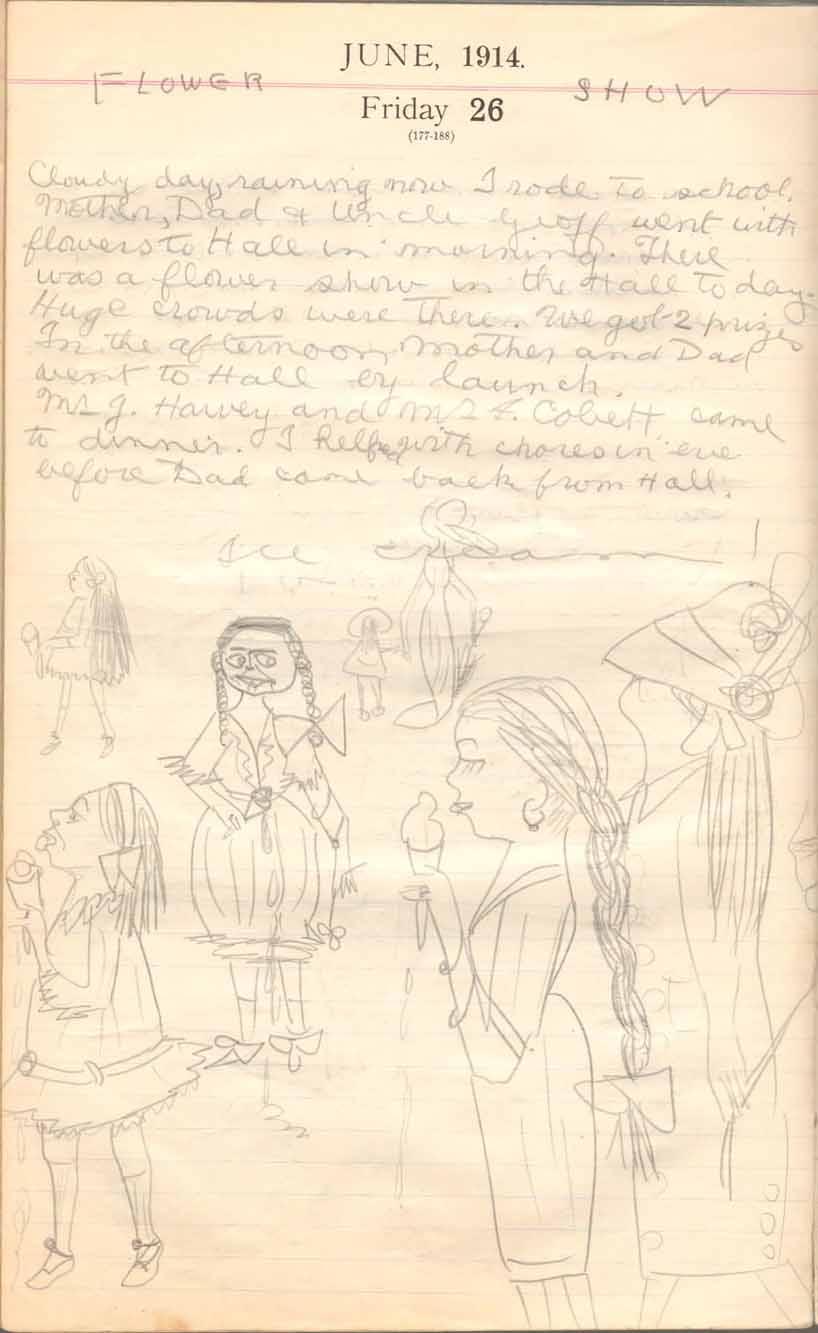 JUNE, 1914.
FLOWER SHOW
Friday 26
(177-188)
Cloudy day, raining now. I rode to school.
Mother, Dad & Uncle Geoff went with
flowers to Hall in morning. There
was a flower show in the Hall to day.
Huge crowds were there. We got 2 prizes
In the afternoon, Mother and Dad
went to Hall by launch.
Mr J. Harvey and Mr F. Cobett came
to dinner. I helped with chores in eve
before Dad came back from Hall.
Ice cream!